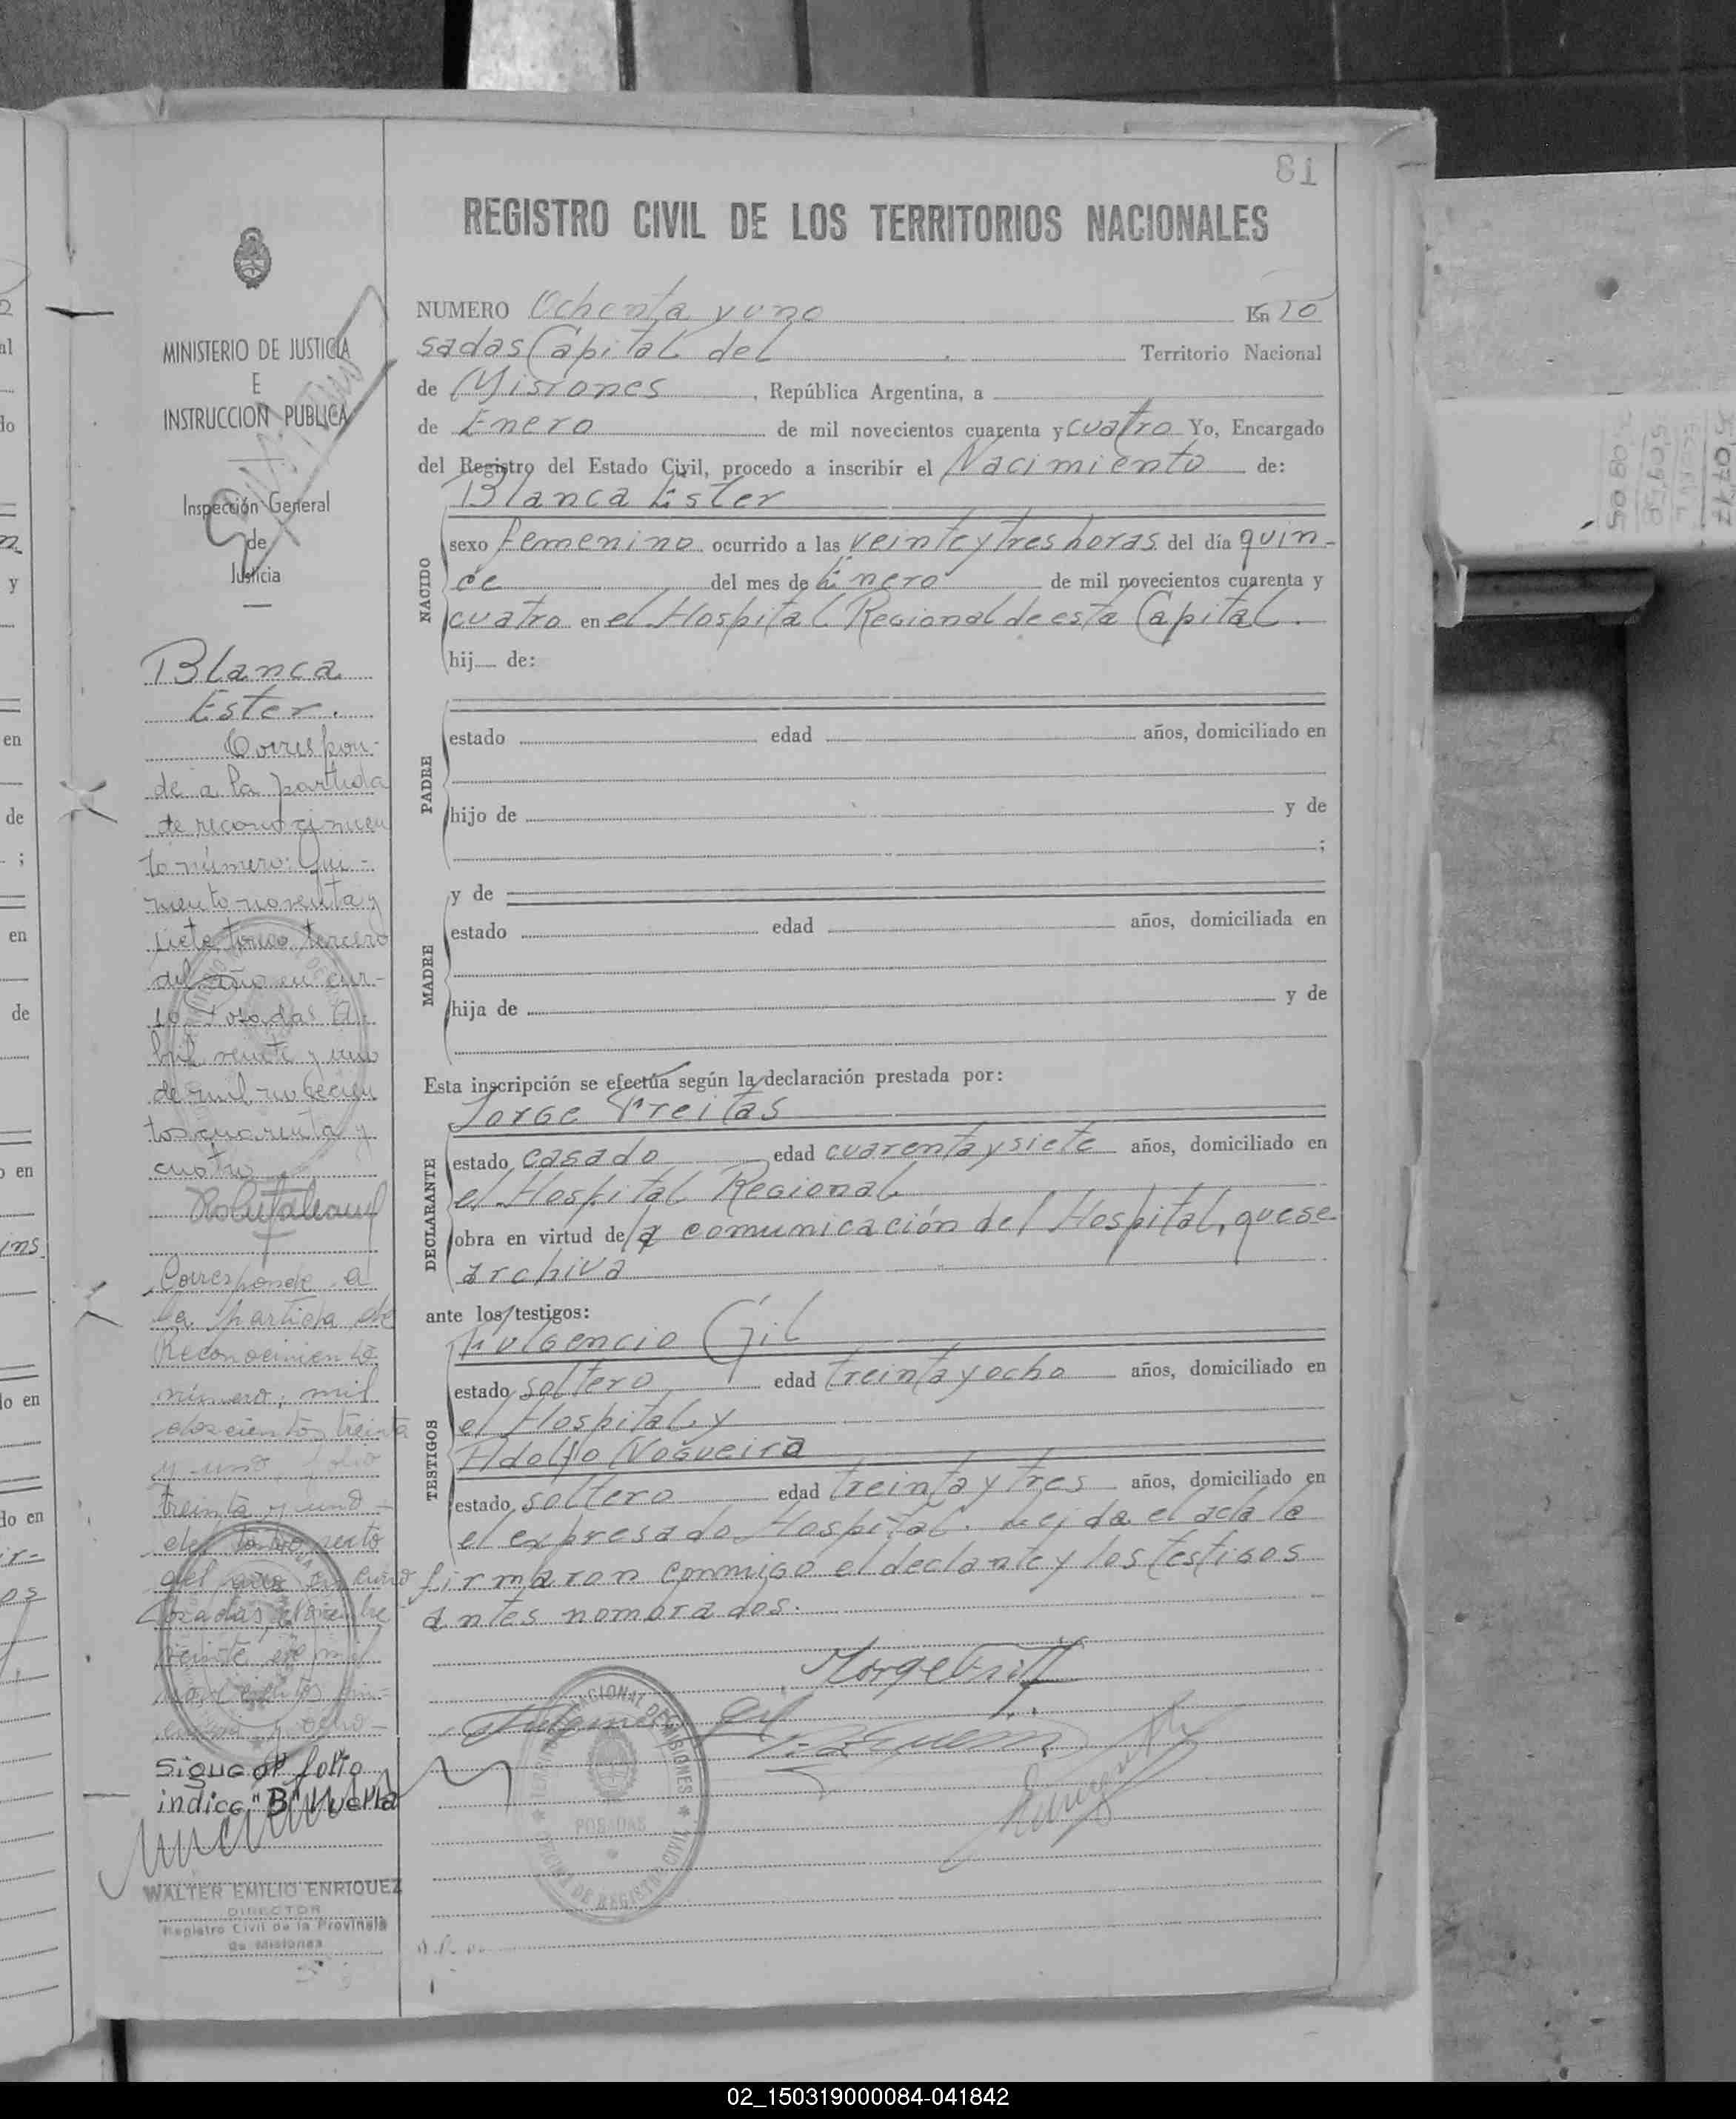 81
REGISTRO CIVIL DE LOS TERRITORIOS NACIONALES
NUMERO Ochenta y uno En Po
sadas Capital del Territorio Nacional
de Misiones, República Argentina, a
de Enero de mil novecientos cuarenta y cuatro Yo, Encargado
del Registro del Estado Civil, procedo a inscribir el Nacimiento de:
Blanca Ester
sexo femenino ocurrido a las veinte y tres horas del día quin-
ce del mes de Enero de mil novecientos cuarenta y
cuatro en el Hospital Regional de esta Capital.
hij de:
NACIDO
estado edad años, domiciliado en
hijo de y de
;
PADRE
y de
estado edad años, domiciliada en
hija de y de
MADRE
Esta inscripción se efectúa según la declaración prestada por:
Jorge Freitas
estado casado edad cuarenta y siete años, domiciliado en
el Hospital Regional
obra en virtud de la comunicación del Hospital, que se
archiva
DECLARANTE
ante los testigos:
Fulgencio Gil
estado soltero edad treinta y ocho años, domiciliado en
el Hospital y
Adolfo Nogueira
estado soltero edad treinta y tres años, domiciliado en
el expresado Hospital. Leida el acta la
TESTIGOS
firmaron conmigo el declante y los testigos
antes nombrados.
TERRITORIO NACIONAL DE MISIONES
OFICINA DE REGISTRO CIVIL
POSADAS
MINISTERIO DE JUSTICIA
E
INSTRUCCION PUBLICA
Inspección General
de
Justicia
Blanca
Ester.
Correspon-
de a la partida
de reconocimien
to número: Qui-
niento noventa y
siete tomo tercero
del año en cur-
so. Posadas A-
bril veinte y uno
de mil novecien
tos cuarenta y
cuatro
Corresponde a
la partida de
Reconocimiento
número, mil
doscientos treinta
y uno, folio
treinta y uno
del tomo sexto
del año en curso
Posadas,
veinte de mil
novecientos cin-
cuenta y ocho-
Sigue al folio
indice "B" Vuelta
WALTER EMILIO ENRIQUEZ
DIRECTOR
Registro Civil de la Provincia
de Misiones
02_150319000084-041842